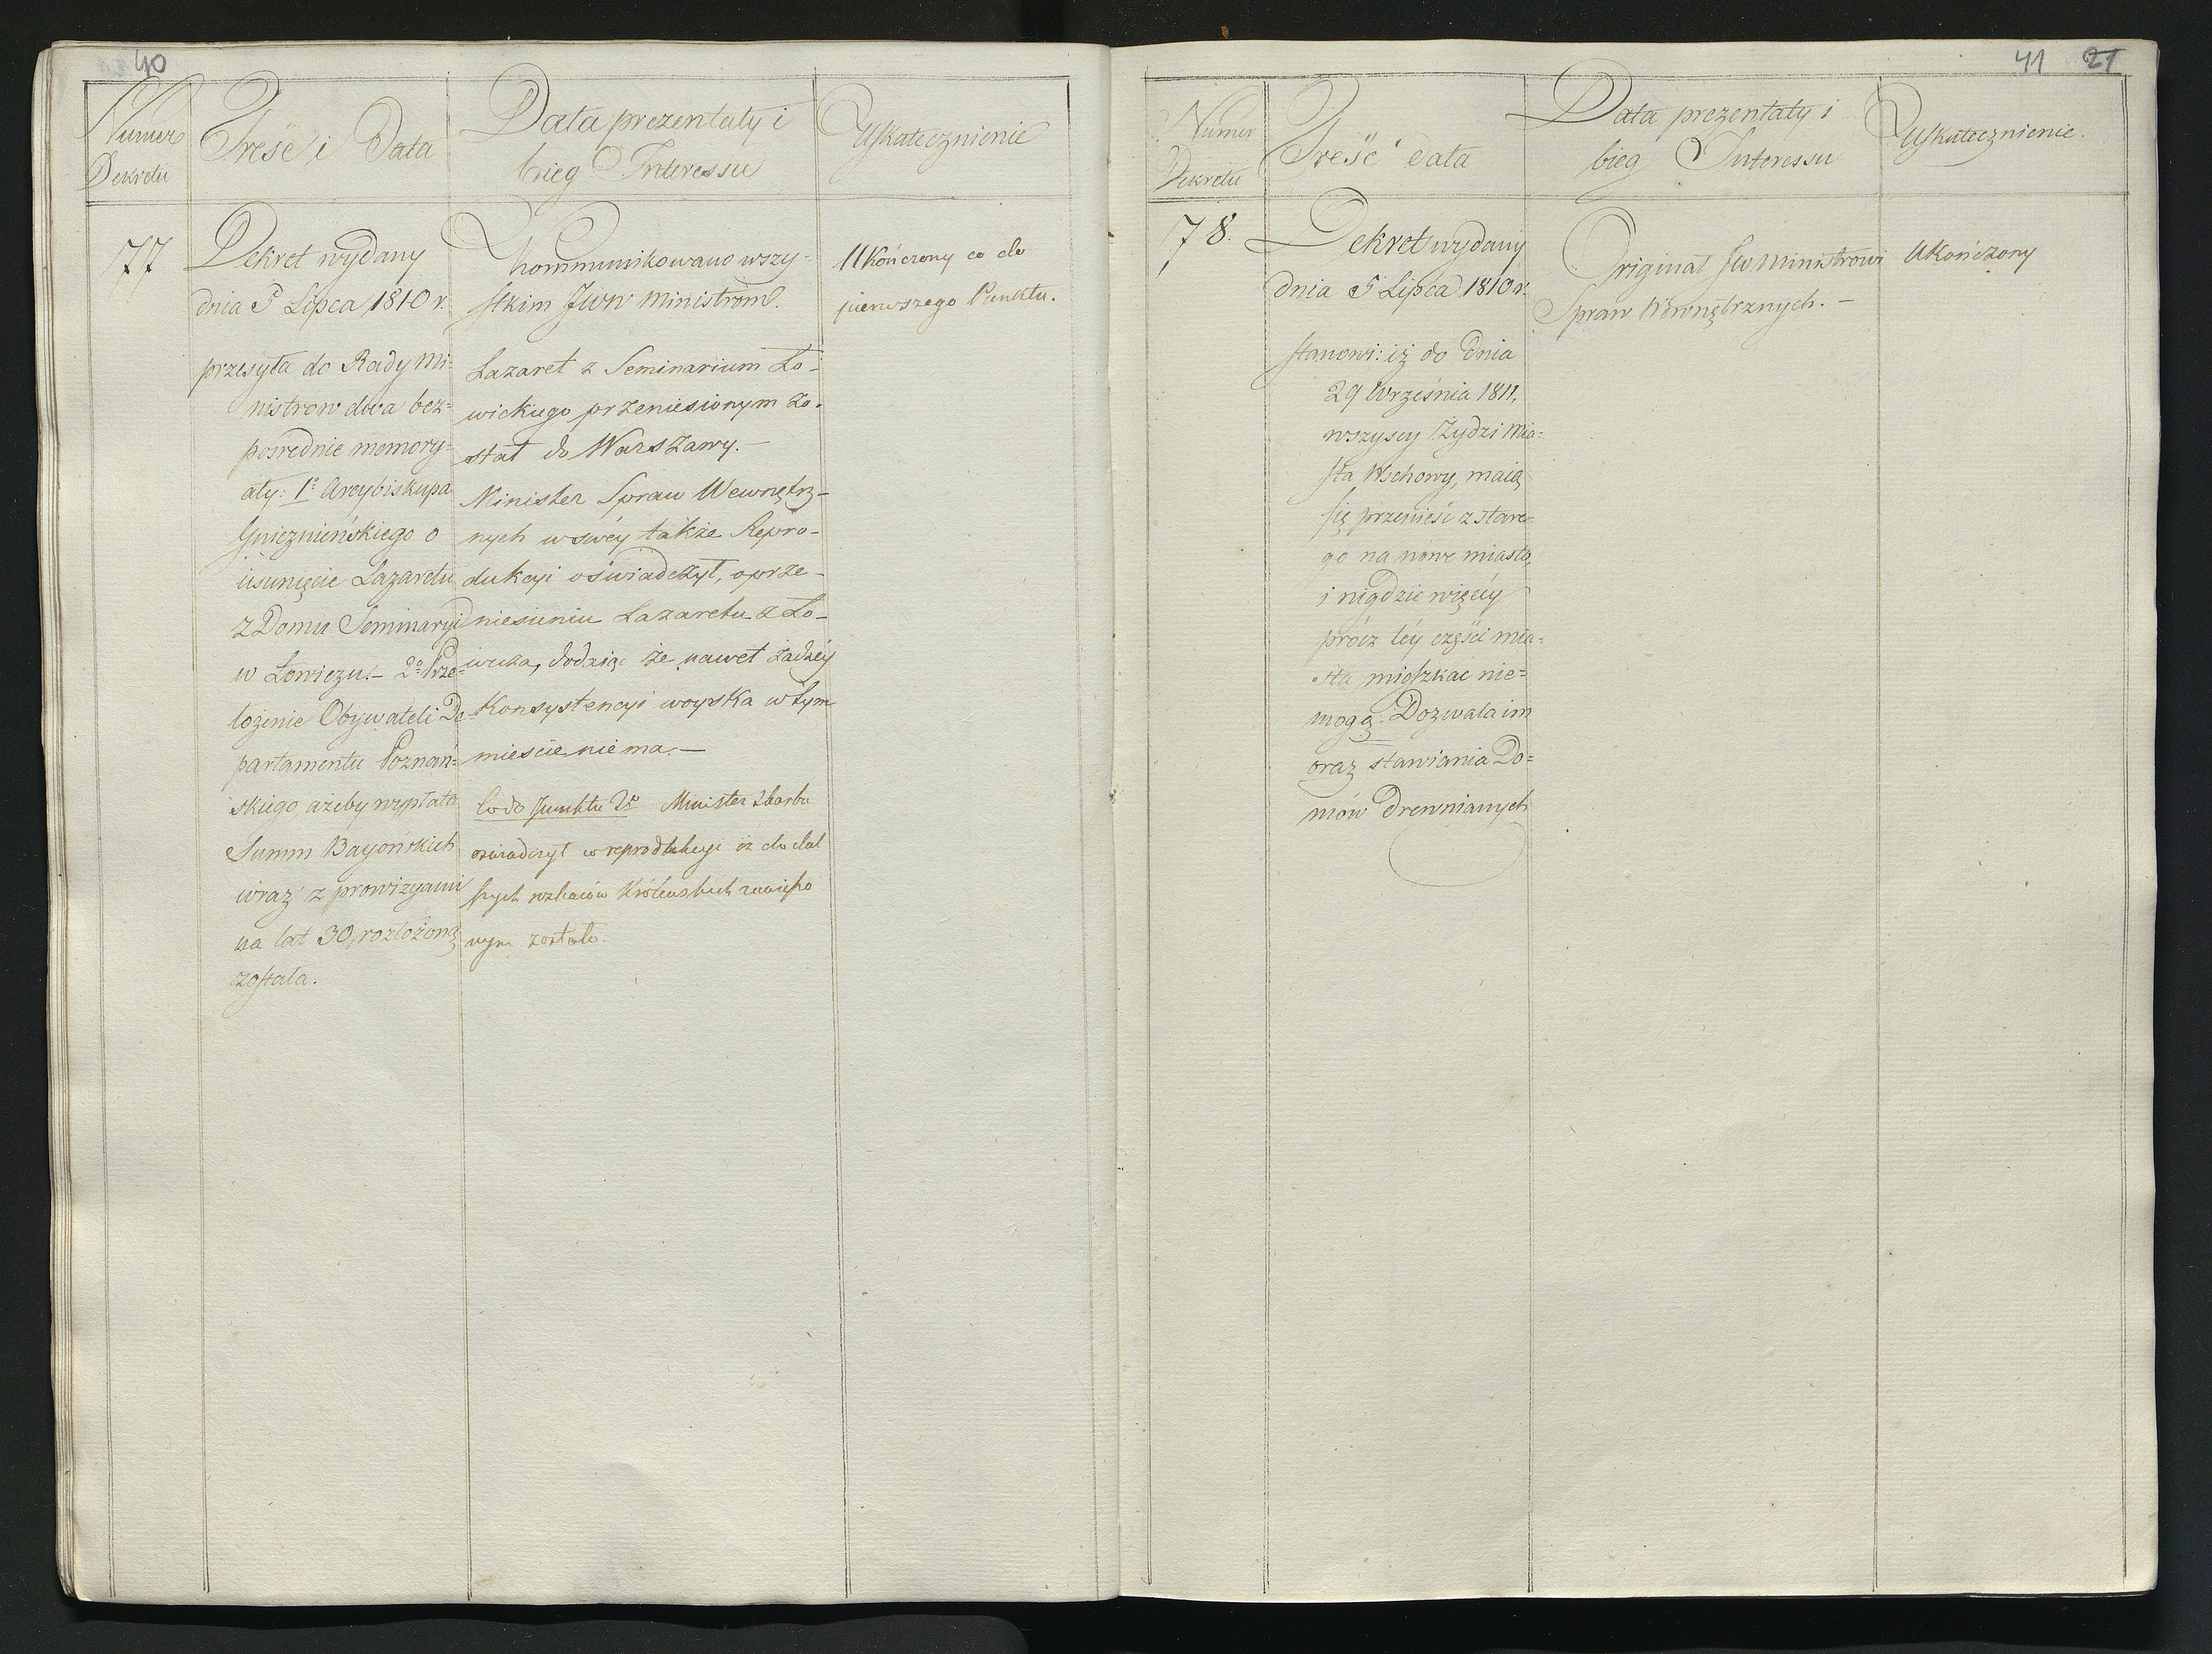 40
Numer
Dekretu
Treść i Data
Data prezentaty i
bieg Interessu
Uskutecznienie
77
Dekret wydany
dnia 5 Lipca 1810 r.
przesyła do Rady Mi=
nistrow dwa bez=
pośrednie memory=
ały: 1º Arcybiskupa
Gnieznieńskiego o
usunięcie Lazaretu
z Domu Seminaryi
w Łowiczu. – 2º Prze=
łożenie Obywateli De=
partamentu Poznań=
skiego, ażeby wypłata
Summ Bayońskich
wraz z prowizyami
na lat 30, rozłożoną
została.
Kommunikowano wszy=
stkim JWW Ministrom.
Lazaret z Seminarium Ło-
wickiego przeniesionym zo-
stał do Warszawy. –
Minister Spraw Wewnętrz-
nych w swéy także Repro-
dukcyi oświadczył, o prze-
niesieniu Lazaretu z Ło-
wicza, dodaiąc że nawet żadnéy
Konsystencyi woyska w tym
mieście niema. –
Co do Punktu 2º Minister Skarbu
oświadczył w reprodukcyi iż do dal
szych rozkazów Królewskich zawieszo
nym zostało.
Ukończony co do
pierwszego Punktu.
41 21
Numer
Dekretu
Treść i data
Data prezentaty i
bieg Interessu
Uskutecznienie.
78.
Dekret wydany
dnia 5 Lipca 1810 r.
stanowi: iż do dnia
29 Września 1811,
wszyscy Żydzi Mia=
sta Wschowy, maią
się przenieść z stare=
go na nowe miasto,
i nigdzie więcéy
prócz téy części mia=
sta mieszkać nie=
mogą. Dozwala im
oraz stawiania Do=
mów drewnianych
Originał JW. Ministrowi
Spraw Wewnętrznych. –
Ukończony